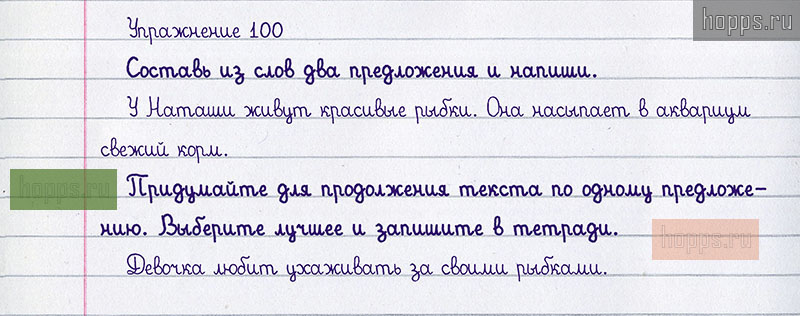 hopps.ru
Упражнение 100
Составь из слов два предложения и напиши.
У Наташи живут красивые рыбки. Она насыпает в аквариум
свежий корм.
hopps.ru
Придумайте для продолжения текста по одному предложе-
нию. Выберите лучшее и запишите в тетради.
hopps.ru
Девочка любит ухаживать за своими рыбками.